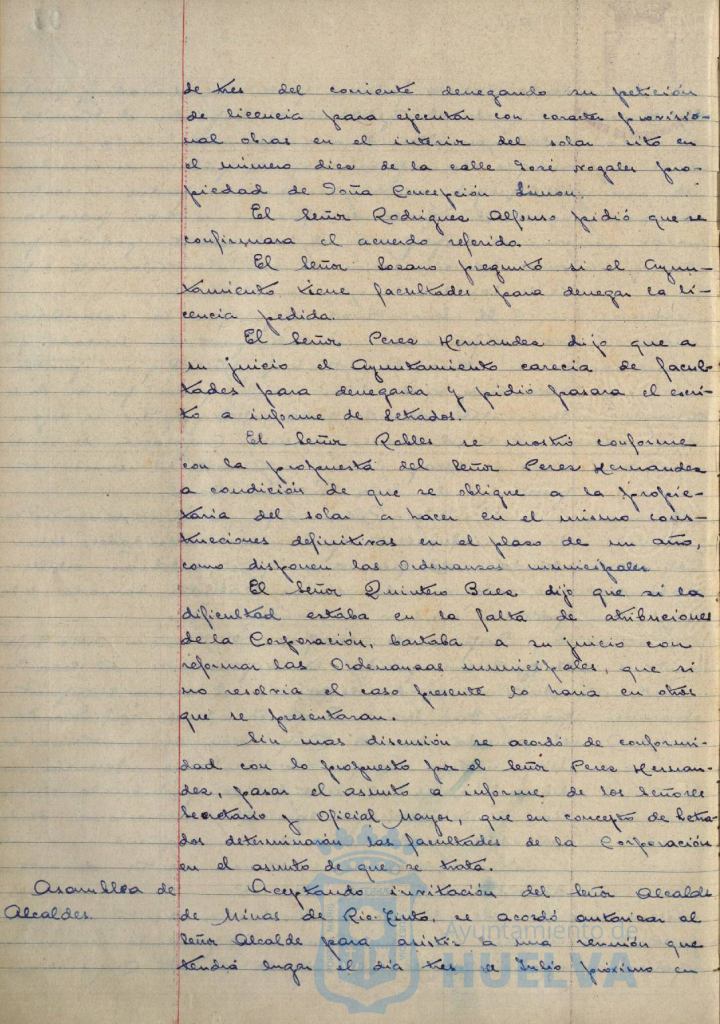 de tres del corriente denegando su petición
de licencia para ejecutar con caracter provisio-
nal obras en el interior del solar sito en
el número diez de la calle José Nogales pro-
piedad de Doña Concepción Limon.
El Señor Rodriguez Alfonso pidió que se
confirmara el acuerdo referido.
El Señor Lozano preguntó si el Ayun-
tamiento tiene facultades para denegar la li-
cencia pedida.
El Señor Perez Hernandez dijo que a
su juicio el Ayuntamiento carecia de facul-
tades para denegarla y pidió pasara el escri-
to a informe de Letrados.
El Señor Robles se mostró conforme
con la propuesta del Señor Perez Hernandez
a condición de que se obligue a la propie-
taria del solar a hacer en el mismo cons-
trucciones definitivas en el plazo de un año,
como disponen las Ordenanzas municipales.
El Señor Quintero Baez dijo que si la
dificultad estaba en la falta de atribuciones
de la Corporación, bastaba a su juicio con
reformar las Ordenanzas municipales, que si
no resolvia el caso presente lo haria en otros
que se presentaran.
Sin mas discusión se acordó de conformi-
dad con lo propuesto por el Señor Perez Hernan-
dez, pasar el asunto a informe de los Señores
Secretario y Oficial Mayor, que en concepto de Letra-
dos determinarán las facultades de la Corporación
en el asunto de que se trata.
Asamblea de
Alcaldes.
Aceptando invitación del Señor Alcalde
de Minas de Rio-Tinto, se acordó autorizar al
Señor Alcalde para asistir a una reunión que
tendrá lugar el día tres de Julio próximo en
Ayuntamiento de
HUELVA